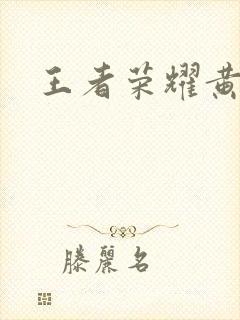 王者荣耀黄
滕丽名